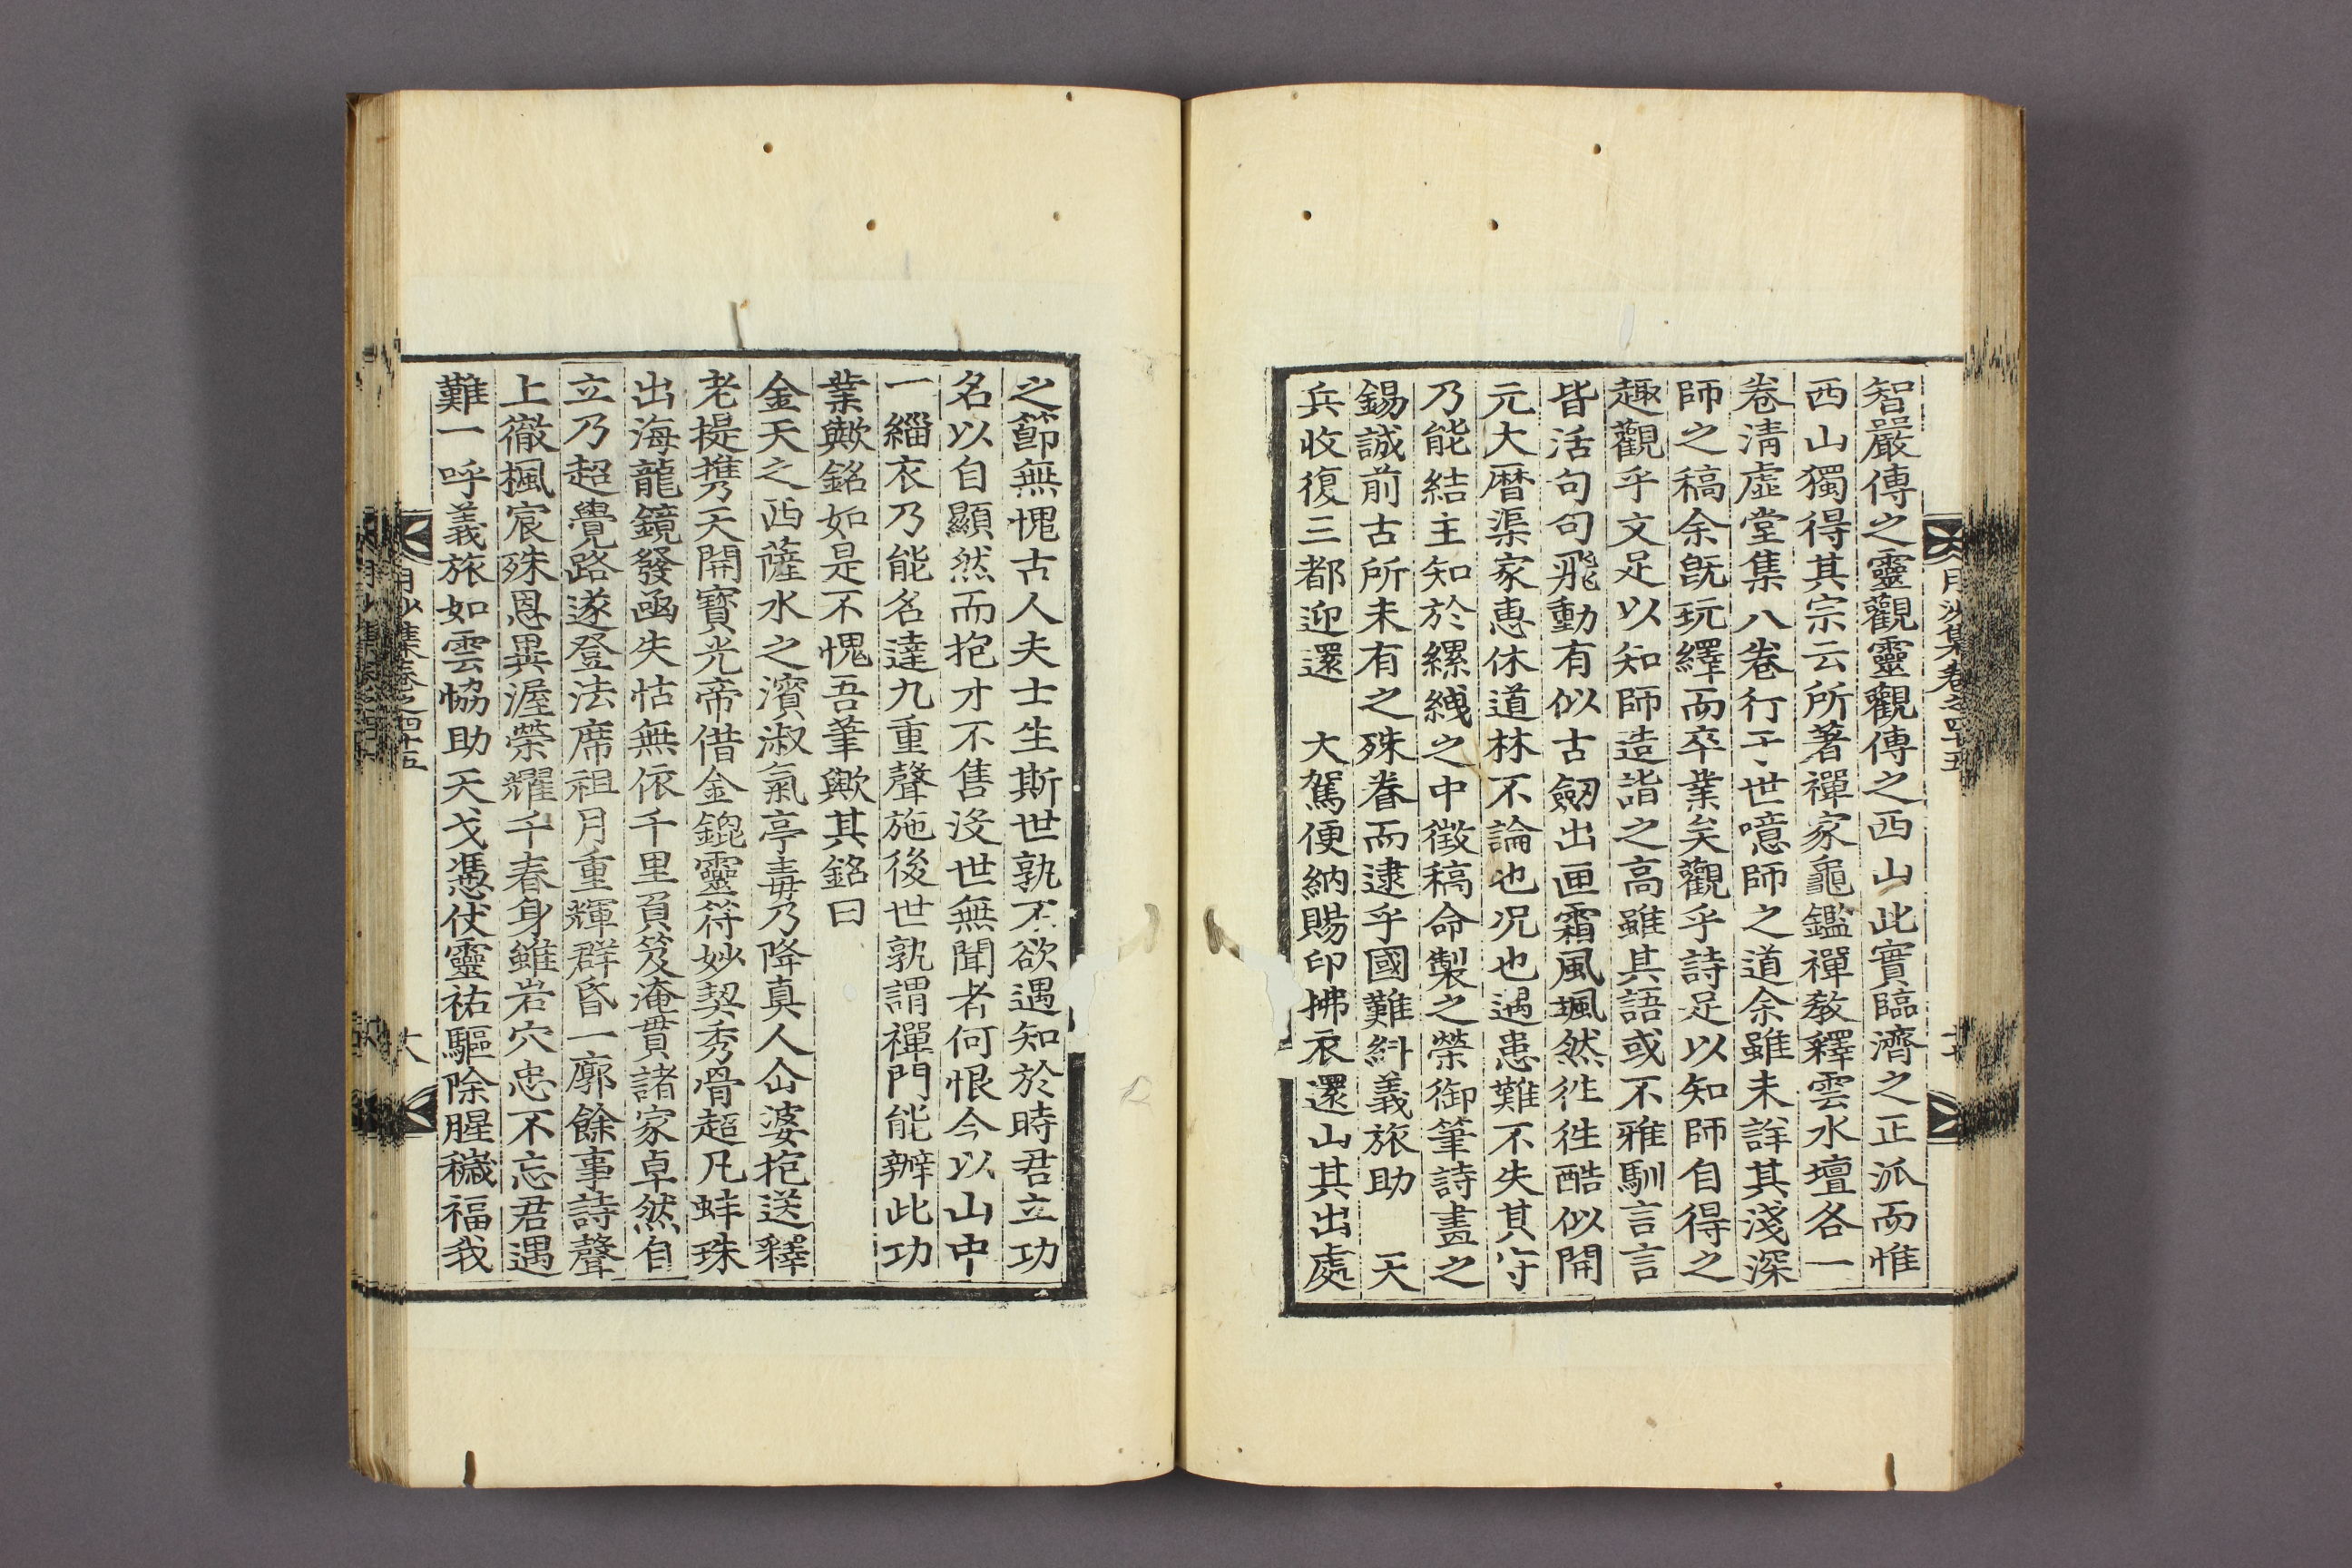 智嚴傳之靈觀靈觀傳之西山此實臨濟之正派而惟
西山獨得其宗云所著禪家龜鑑禪敎釋雲水壇各一
卷淸虛堂集八卷行于世噫師之道余雖未詳其淺深
師之稿余旣玩繹而卒業矣觀乎詩足以知師自得之
趣觀乎文足以知師造詣之高雖其語或不雅馴言言
皆活句句飛動有似古劒出匣霜風颯然往往酷似開
元大曆渠家惠休道林不論也况也遇患難不失其守
乃能結主知於縲絏之中徵稿命製之榮御筆詩畫之
錫誠前古所未有之殊眷而逮乎國難糾義旅助 天
兵收復三都迎還 大駕便納賜印拂衣還山其出處
月沙集卷之四十五
之節無愧古人夫士生斯世孰不欲遇知於時君立功
名以自顯然而抱才不售沒世無聞者何恨今以山中
一緇衣乃能名達九重聲施後世孰謂禪門能辦此功
業歟銘如是不愧吾筆歟其銘曰
金天之西薩水之濱淑氣亭毒乃降眞人仚婆抱送釋
老提携天開寶光帝借金鎞靈符妙契秀骨超凡蚌珠
出海龍鏡發函失怙無依千里負笈淹貫諸家卓然自
立乃超覺路遂登法席祖月重輝群昏一廓餘事詩聲
上徹楓宸殊恩異渥榮耀千春身雖岩穴忠不忘君遇
難一呼義旅如雲恊助天戈憑仗靈祐驅除腥穢福我
月沙集卷之四十五